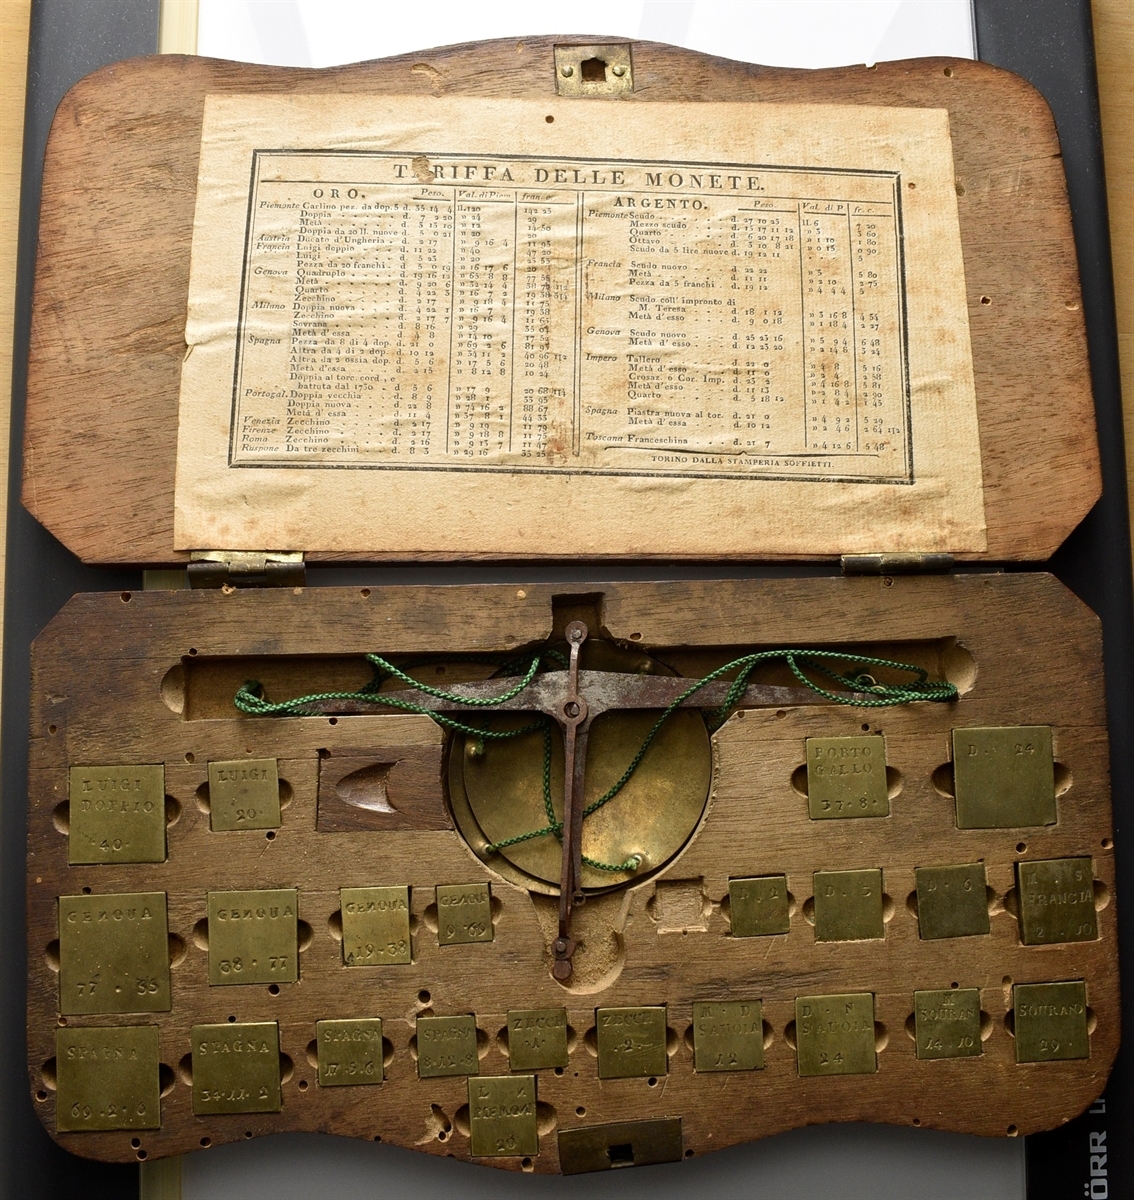 TARIFFA DELLE MONETE.
ORO. Peso. Val. di Piem. fran. c.
Piemonte Carlino pez. da dop. 5 d. 35 14 4 ll. 120 142 23
Doppia d. 7 2 20 » 24
Metà
Doppia da 20 ll. nuove d. » 20
Austria Ducato d'Ungheria d. 2 17 » 9 16 4 11 95
Francia Luigi doppio d. 11 22 » 40 47 20
Luigi d. 5 23 » 20
Pezza da 20 franchi d. » 16 17 6 20
Genova Quadruplo
Metà d. 9 20 6
Quarto d. 4 22 3
Zecchino d. 2 17
Milano Doppia nuova
Zecchino d. 2 17
Sovrana d. 8 16 » 29
Metà d'essa d. 4 8 » 14 10
Spagna Pezza da 8 di 4 dop. d. 21 0 » 69 2 6 81 97
Altra da 4 di 2 dop. d. 10 12 » 34 11 2 40 96 1|2
Altra da 2 ossia dop. d. 5 6 » 17 5 6 20 48
Metà d'essa d. 2 15 » 8 12 8 10 24
Doppia al tor. cord., e
battuta dal 1730 d. 5 6 » 17 9
Portogal. Doppia vecchia d. 8 9 » 28
Doppia nuova d. 22 8 » 74 16 2 88 67
Metà d'essa d. 11 4 » 37 8 1 44 33
Venezia Zecchino d. 2 17 » 9 19 11 79
Firenze Zecchino d. 2 17 » 9 18 8 11 75
Roma Zecchino d. 2 16 » 9 13 7 11 47
Ruspone Da tre zecchini d. 8 3 » 29 16 35 25
ARGENTO. Peso. Val. di P. fr. c.
Piemonte Scudo d. 27 10 23 ll. 6 7 20
Mezzo scudo d. 13 17 11 12 » 3 3 60
Quarto d. 6 20 17 18 » 1 10 1 80
Ottavo d. 3 10 8 21 » 0 15 0 90
Scudo da 5 lire nuove d. 19 12 11 5
Francia Scudo nuovo d. 22 22 5 80
Metà d. 11 11 » 2 10 2 75
Pezza da 5 franchi d. 19 12 » 4 4 4 5
Milano Scudo coll' impronto di
M. Teresa d. 18 1 12 » 3 16 8 4 54
Metà d'esso d. 9 0 18 » 1 18 4 2 27
Genova Scudo nuovo
Metà d. 12 23 20 » 2 14 8 3 24
Impero Tallero d. 22 0 » 4 8 5 16
Metà d'esso d. 11 0 » 2 4 2 58
Crosaz. o Cor. Imp. d. 23 2 » 4 16 8 5 81
Metà d'esso d. 11 13 2 90
Quarto d. 5 18 12 1 45
Spagna Piastra nuova al tor. d. 21 0 » 4 9 2 5 29
Metà d'essa d. 10 12 » 2 4 6 2 64 1|2
Toscana Franceschina d. 21 7 » 4 12 6 5 48
TORINO DALLA STAMPERIA SOFFIETTI.
LUIGI
DOPPIO
·40·
LUIGI
·20·
PORTO
GALLO
37·8·
D. 24
GENOUA
77·35
GENOUA
38·77
GENOUA
19·38
GENOU
9·69
D. 2
D. 3
D. 6
FRANCIA
SPAGNA
69·2·6
SPAGNA
34·11·2
SPAGNA
17·5·6
SPAGN
8·12·8
ZECCI
·1·
ZECCI
·2·
M·D
SAUOIA
12
D·N
SAUOIA
24
M
SOURAN
14·10
SOURANO
29·
L N
PIEMON
20
ÖRR